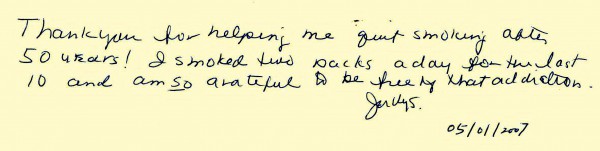 Thank you for helping me quit smoking after
50 years! I smoked two packs a day for the last
10 and am so grateful to be free of that addiction.
Judy S.
05/01/2007